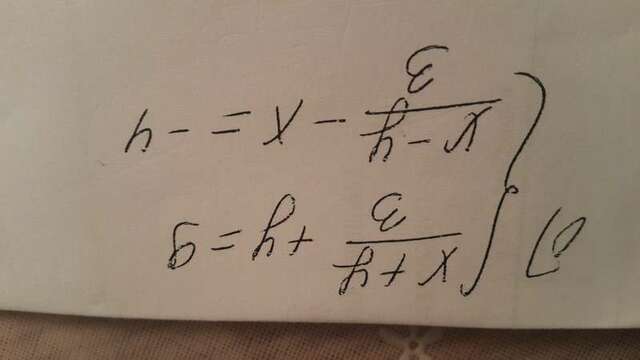 б) { (x+y)/3 + y = 9
(x-y)/3 - x = -4